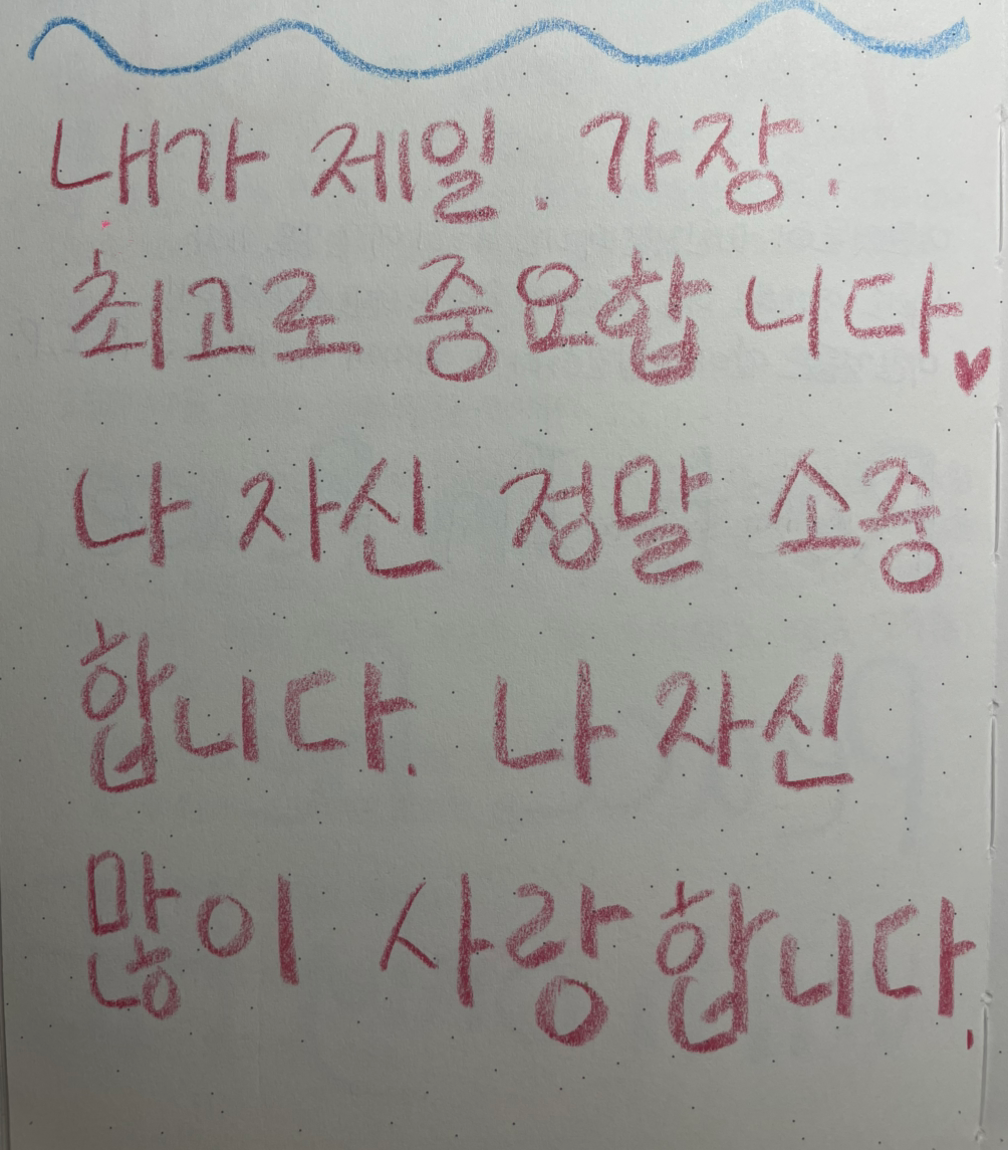 내가 제일. 가장.
최고로 중요합니다♥
나 자신 정말 소중
합니다. 나 자신
많이 사랑합니다.